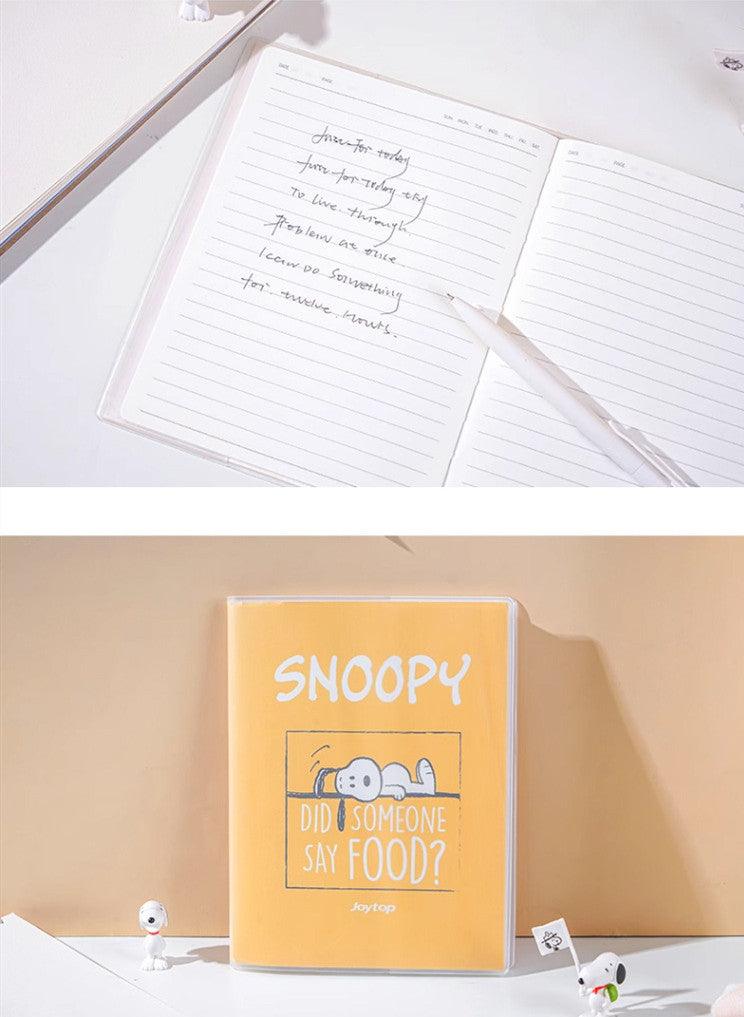 DATE PAGE
SUN. MON. TUE. WED. THU. FRI. SAT.
Just for today
Just for Today try
To live through
Problem at once
I can Do Something
for twelve hours.
DATE PAGE
SNOOPY
DID SOMEONE
SAY FOOD?
Joytop